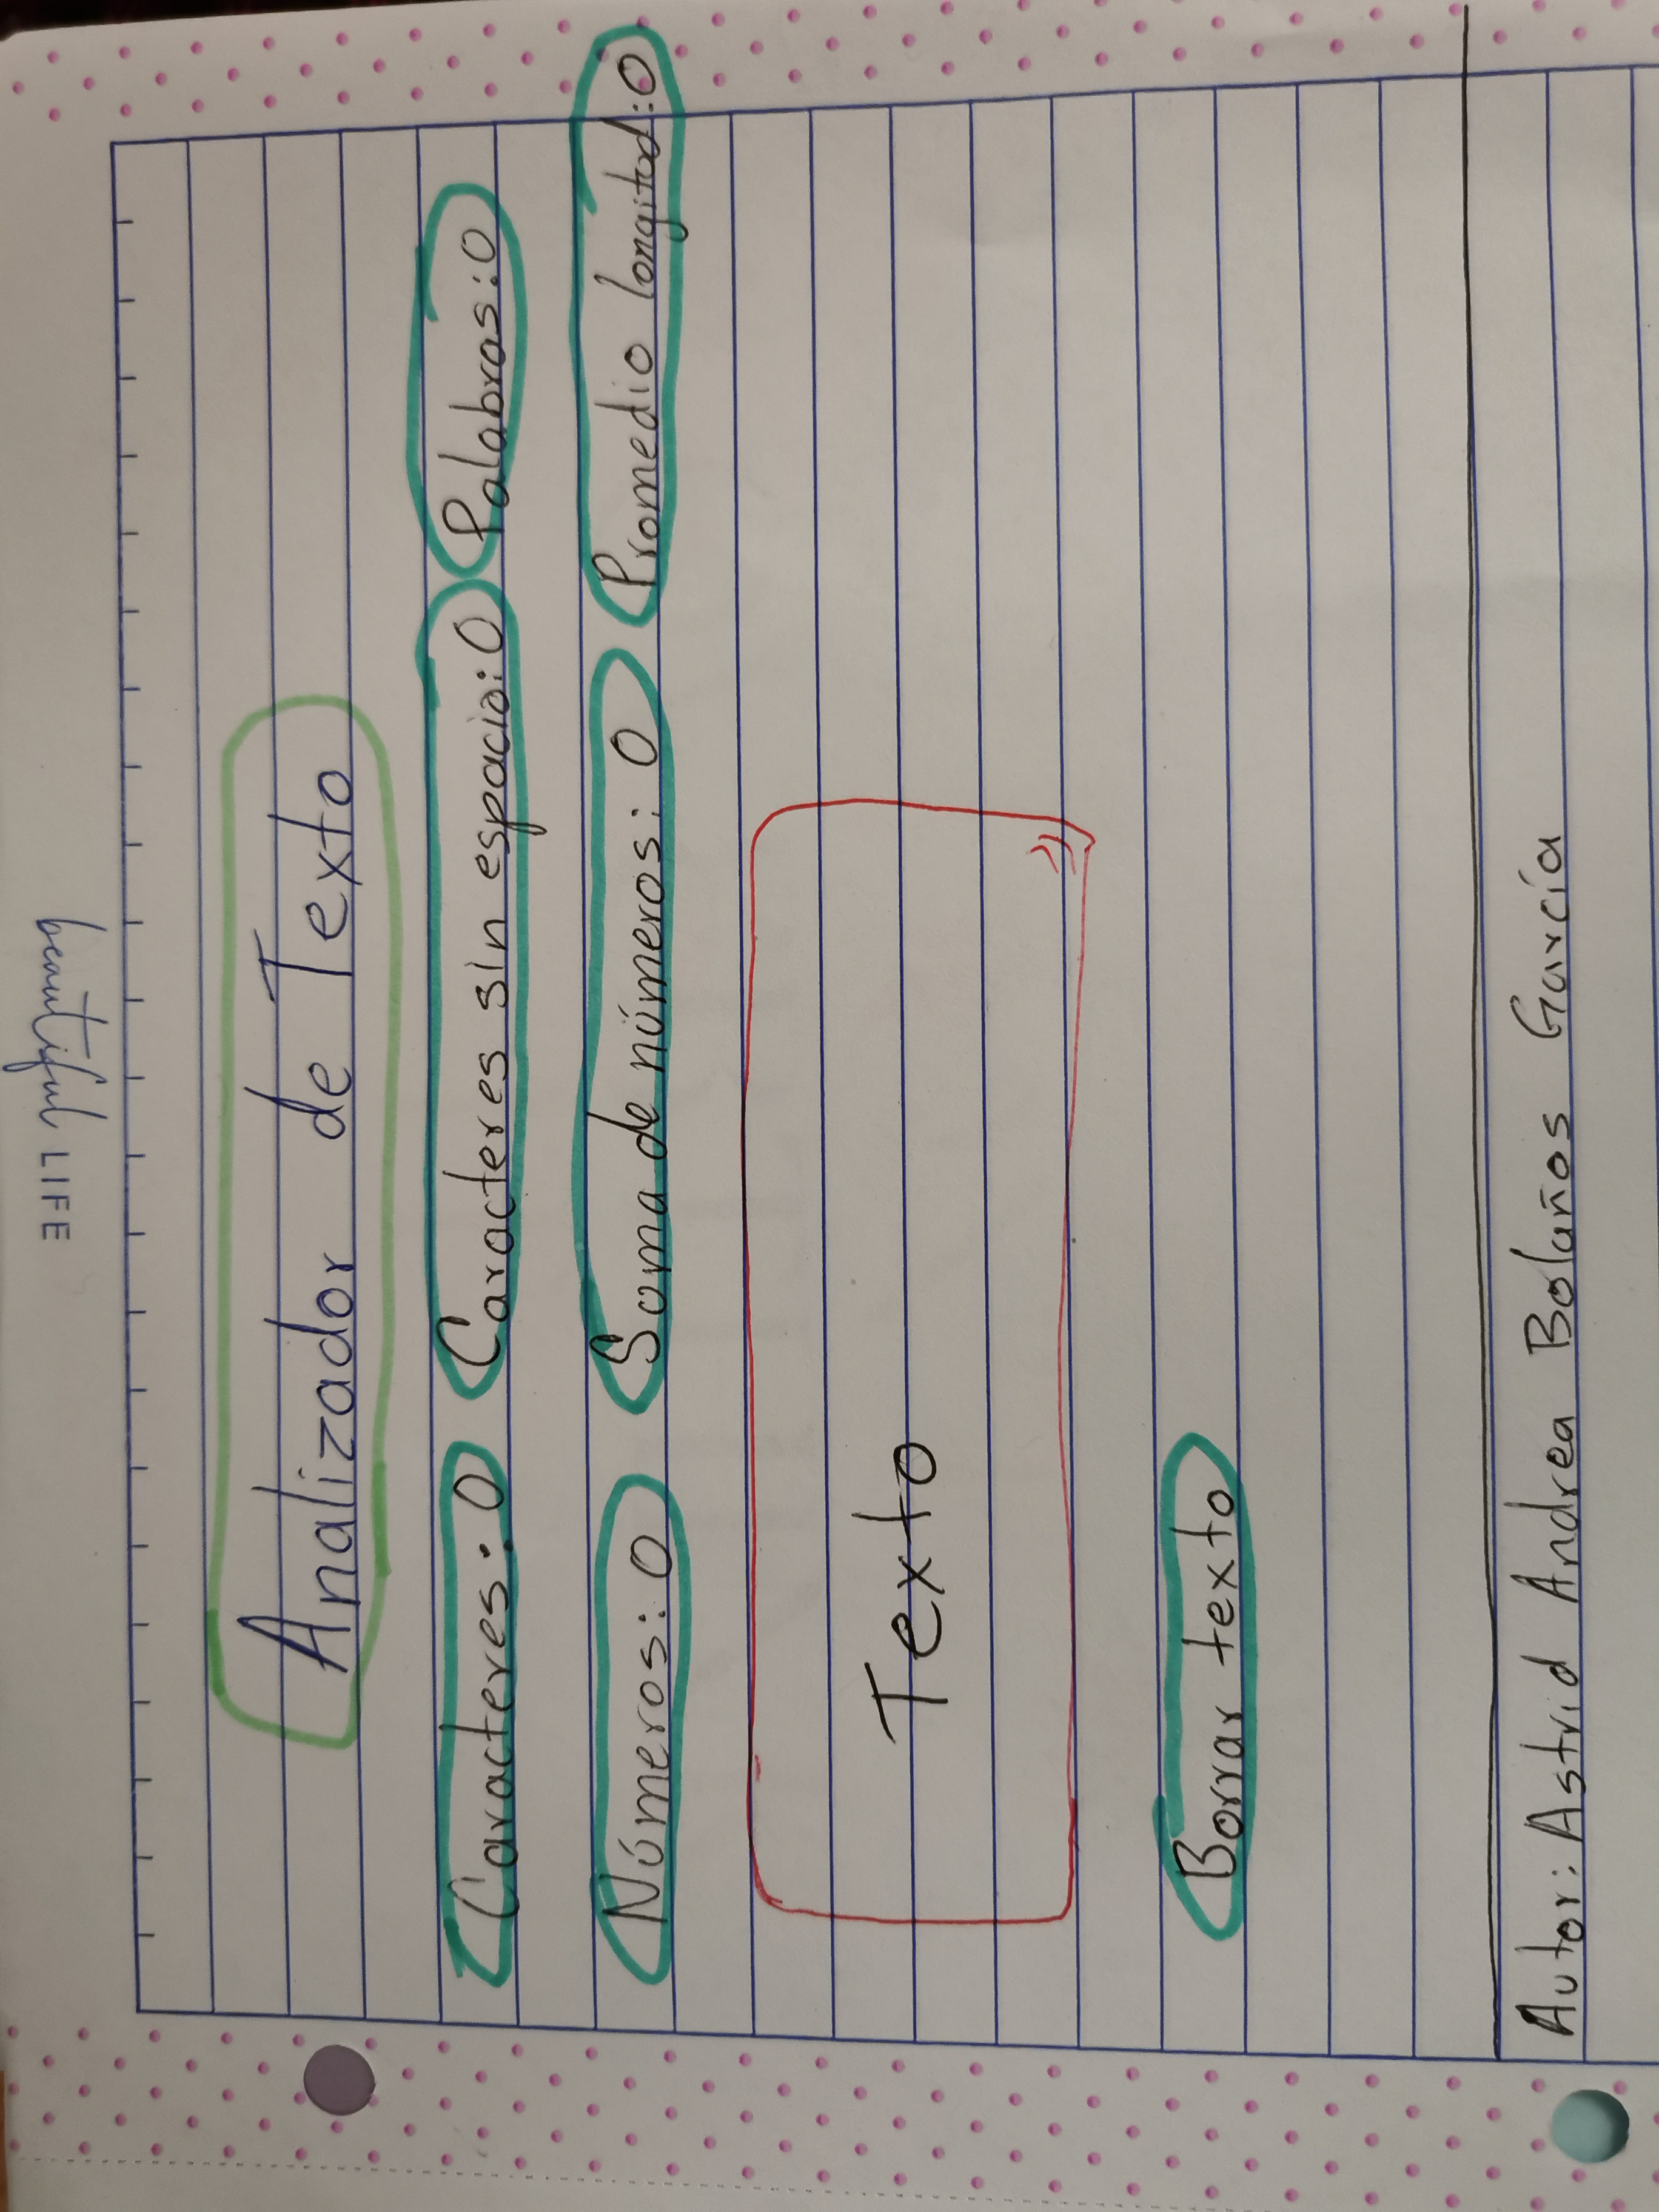 beautiful LIFE
Analizador de Texto
Caracteres: 0 Caracteres sin espacio: 0 Palabras: 0
Números: 0 Suma de números: 0 Promedio longitud: 0
Texto
Borrar texto
Autor: Astrid Andrea Bolaños García